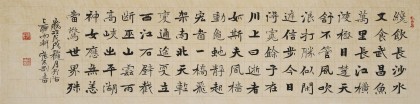 纔飲長沙水
又食武昌魚
萬里長江橫
渡極目楚天
舒不管風吹
浪打勝似閒
庭信步今日
得寬餘子在
川上曰逝者
如斯夫風檣
動龜蛇靜起
宏圖一橋飛
架南北天塹
變通途更立
西江石壁截
斷巫山雲雨
高峽出平湖
神女應無恙
當驚世界殊